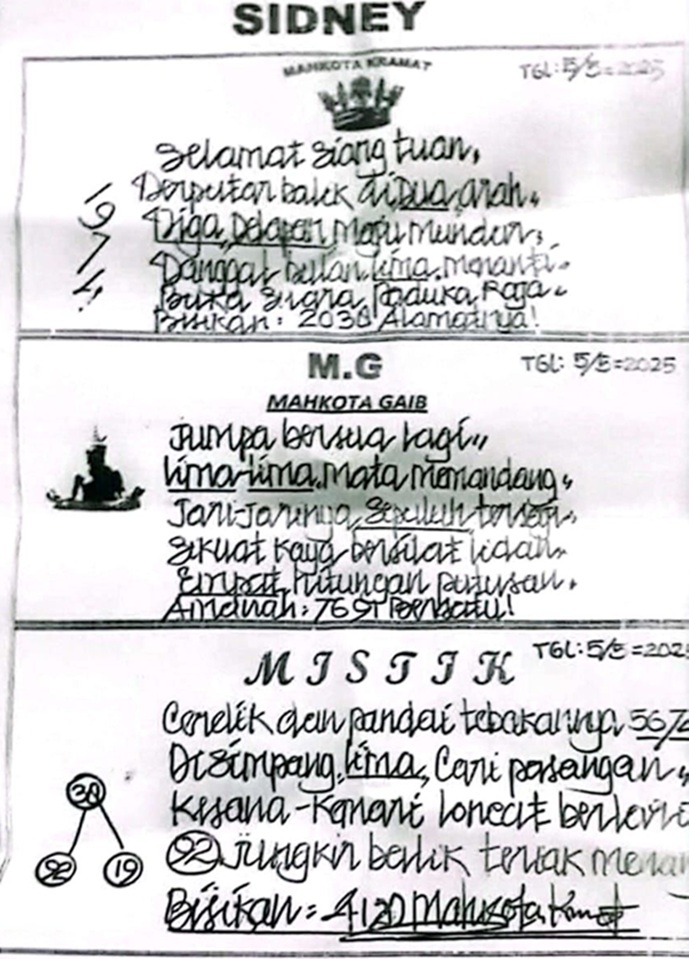 SIDNEY
MAHKOTA KRAMAT
TGL: 5/5=2025
Selamat siang tuan,
Berputar balik didua, arah,,
Tiga, Delapan Maju mundur,
Tanggal bulan lima, menanti.
Buka suara Paduka Raja,,
Bisikan: 2038 Alamatnya!
19
7
4
M.G
TGL: 5/5=2025
MAHKOTA GAIB
Jumpa bersua lagi,,
lima-lima, Mata memandang,
Jari-Jarinya, Sepuluh
Sekuat Kaya bersilat lidah,,
Empat, hitungan putusan.
Amanah: 7691 Bersatu!
MISTIK
TGL: 5/5=202
Cerdik dan pandai tebakannya 56/
Disimpang, lima, Cari pasangan,,
Kesana-Kemari loncat
92 Jungkir balik teriak
30
92
19
Bisikan: 4120 Mahkota